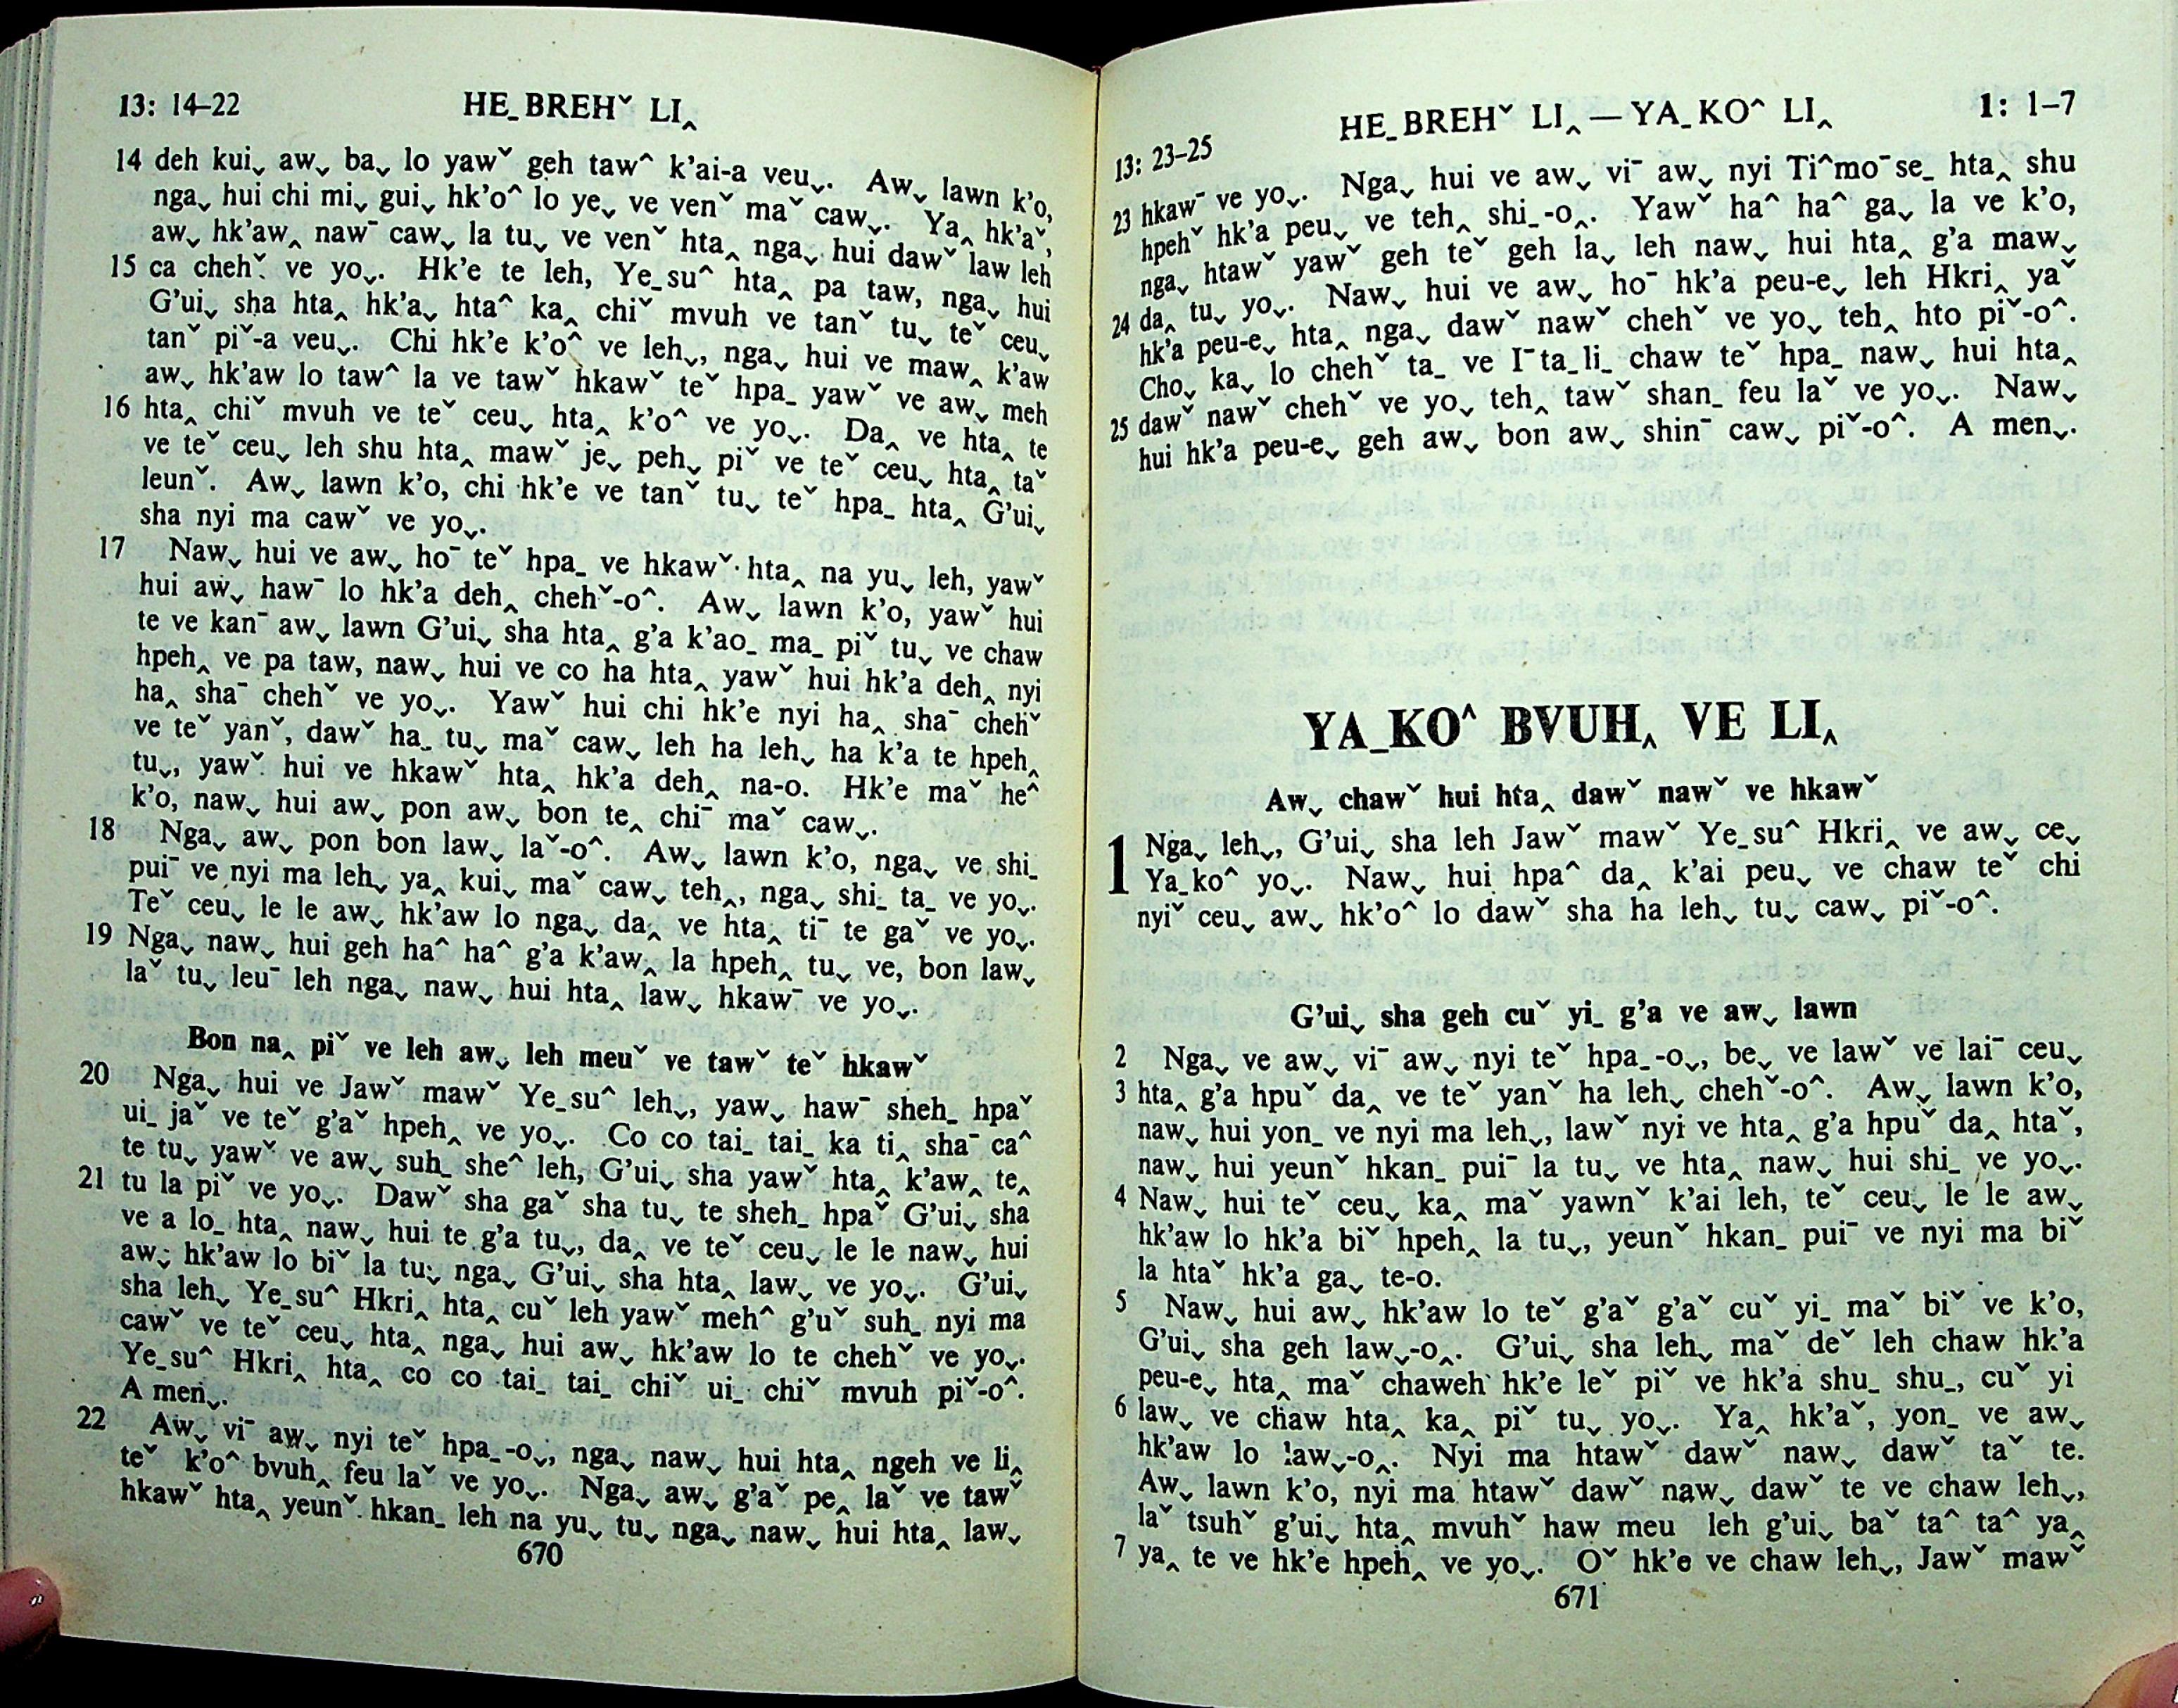 13: 14–22
HE_BREHˇ LI‸
14 deh kui⌄ aw⌄ ba⌄ lo yawˇ geh taw^ k’ai-a veu⌄. Aw⌄ lawn k’o,
nga⌄ hui chi mi⌄ gui⌄ hk’o^ lo ye⌄ ve venˇ maˇ caw⌄. Ya‸ hk’aˇ,
aw⌄ hk’aw‸ naw¯ caw⌄ la tu⌄ ve venˇ hta‸ nga⌄ hui dawˇ law leh
15 ca chehˇ ve yo⌄. Hk’e te leh, Ye_su^ hta‸ pa taw, nga⌄ hui
G’ui⌄ sha hta‸ hk’a⌄ hta^ ka‸ chiˇ mvuh ve tanˇ tu⌄ teˇ ceu⌄
tanˇ piˇ-a veu⌄. Chi hk’e k’o^ ve leh⌄, nga⌄ hui ve maw‸ k’aw
aw⌄ hk’aw lo taw^ la ve tawˇ hkawˇ teˇ hpa_ yawˇ ve aw⌄ meh
16 hta‸ chiˇ mvuh ve teˇ ceu⌄ hta‸ k’o^ ve yo⌄. Da‸ ve hta‸ te
ve teˇ ceu⌄ leh shu hta‸ mawˇ je⌄ peh⌄ piˇ ve teˇ ceu⌄ hta‸ taˇ
leunˇ. Aw⌄ lawn k’o, chi hk’e ve tanˇ tu⌄ teˇ hpa_ hta‸ G’ui⌄
sha nyi ma cawˇ ve yo⌄.
17 Naw⌄ hui ve aw⌄ ho¯ teˇ hpa_ ve hkawˇ hta‸ na yu⌄ leh, yawˇ
hui aw⌄ haw¯ lo hk’a deh‸ chehˇ-o^. Aw⌄ lawn k’o, yawˇ hui
te ve kan¯ aw⌄ lawn G’ui⌄ sha hta‸ g’a k’ao_ ma_ piˇ tu⌄ ve chaw
hpeh‸ ve pa taw, naw⌄ hui ve co ha hta‸ yawˇ hui hk’a deh‸ nyi
ha‸ sha¯ chehˇ ve yo⌄. Yawˇ hui chi hk’e nyi ha‸ sha¯ chehˇ
ve teˇ yanˇ, dawˇ ha_ tu⌄ maˇ caw⌄ leh ha leh⌄ ha k’a te hpeh‸
tu⌄, yawˇ hui ve hkawˇ hta‸ hk’a deh‸ na-o. Hk’e maˇ he^
k’o, naw⌄ hui aw⌄ pon aw⌄ bon te‸ chi¯ maˇ caw⌄.
18 Nga⌄ aw⌄ pon bon law⌄ laˇ-o^. Aw⌄ lawn k’o, nga⌄ ve shi_
pui¯ ve nyi ma leh⌄ ya‸ kui⌄ maˇ caw⌄ teh‸, nga⌄ shi_ ta_ ve yo⌄.
Teˇ ceu⌄ le le aw⌄ hk’aw lo nga⌄ da‸ ve hta‸ ti¯ te gaˇ ve yo⌄.
19 Nga⌄ naw⌄ hui geh ha^ ha^ g’a k’aw‸ la hpeh‸ tu⌄ ve, bon law⌄
laˇ tu⌄ leu¯ leh nga⌄ naw⌄ hui hta‸ law⌄ hkaw¯ ve yo⌄.
Bon na‸ piˇ ve leh aw⌄ leh meuˇ ve tawˇ teˇ hkawˇ
20 Nga⌄ hui ve Jawˇ mawˇ Ye_su^ leh⌄, yaw⌄ haw¯ sheh_ hpaˇ
ui_ jaˇ ve teˇ g’aˇ hpeh‸ ve yo⌄. Co co tai_ tai_ ka ti‸ sha¯ ca^
te tu⌄ yawˇ ve aw⌄ suh_ she^ leh, G’ui⌄ sha yawˇ hta‸ k’aw‸ te‸
21 tu la piˇ ve yo⌄. Dawˇ sha gaˇ sha tu⌄ te sheh_ hpaˇ G’ui⌄ sha
ve a lo_ hta‸ naw⌄ hui te g’a tu⌄, da‸ ve teˇ ceu⌄ le le naw⌄ hui
aw⌄ hk’aw lo biˇ la tu⌄ nga⌄ G’ui⌄ sha hta‸ law⌄ ve yo⌄. G’ui⌄
sha leh⌄ Ye_su^ Hkri‸ hta‸ cuˇ leh yawˇ meh^ g’uˇ suh_ nyi ma
cawˇ ve teˇ ceu⌄ hta‸ nga⌄ hui aw⌄ hk’aw lo te chehˇ ve yo⌄.
Ye_su^ Hkri‸ hta‸ co co tai_ tai_ chiˇ ui_ chiˇ mvuh piˇ-o^.
A men⌄.
22 Aw⌄ vi¯ aw⌄ nyi teˇ hpa_-o⌄, nga⌄ naw⌄ hui hta‸ ngeh ve li‸
teˇ k’o^ bvuh‸ feu laˇ ve yo⌄. Nga⌄ aw⌄ g’aˇ pe‸ laˇ ve tawˇ
hkawˇ hta‸ yeunˇ hkan_ leh na yu⌄ tu⌄ nga⌄ naw⌄ hui hta‸ law⌄
670
13: 23–25
HE_BREHˇ LI‸ — YA_KO^ LI‸
1: 1–7
23 hkaw¯ ve yo⌄. Nga⌄ hui ve aw⌄ vi¯ aw⌄ nyi Ti^mo¯se_ hta‸ shu
hpehˇ hk’a peu⌄ ve teh‸ shi_-o‸. Yawˇ ha^ ha^ ga⌄ la ve k’o,
nga⌄ htawˇ yawˇ geh teˇ geh la⌄ leh naw⌄ hui hta‸ g’a maw⌄
24 da‸ tu⌄ yo⌄. Naw⌄ hui ve aw⌄ ho¯ hk’a peu-e⌄ leh Hkri‸ yaˇ
hk’a peu-e⌄ hta‸ nga⌄ dawˇ nawˇ chehˇ ve yo⌄ teh‸ hto piˇ-o^.
Cho⌄ ka⌄ lo chehˇ ta_ ve I¯ta_li_ chaw teˇ hpa_ naw⌄ hui hta‸
25 dawˇ nawˇ chehˇ ve yo⌄ teh‸ tawˇ shan_ feu laˇ ve yo⌄. Naw⌄
hui hk’a peu-e⌄ geh aw⌄ bon aw⌄ shin¯ caw⌄ piˇ-o^. A men⌄.
YA_KO^ BVUH‸ VE LI‸
Aw⌄ chawˇ hui hta‸ dawˇ nawˇ ve hkawˇ
1 Nga⌄ leh⌄, G’ui⌄ sha leh Jawˇ mawˇ Ye_su^ Hkri‸ ve aw⌄ ce⌄
Ya_ko^ yo⌄. Naw⌄ hui hpa^ da‸ k’ai peu⌄ ve chaw teˇ chi
nyiˇ ceu⌄ aw⌄ hk’o^ lo dawˇ sha ha leh⌄ tu⌄ caw⌄ piˇ-o^.
G’ui⌄ sha geh cuˇ yi_ g’a ve aw⌄ lawn
2 Nga⌄ ve aw⌄ vi¯ aw⌄ nyi teˇ hpa_-o⌄, be⌄ ve lawˇ ve lai¯ ceu⌄
3 hta‸ g’a hpuˇ da‸ ve teˇ yanˇ ha leh⌄ chehˇ-o^. Aw⌄ lawn k’o,
naw⌄ hui yon_ ve nyi ma leh⌄, lawˇ nyi ve hta‸ g’a hpuˇ da‸ htaˇ,
naw⌄ hui yeunˇ hkan_ pui¯ la tu⌄ ve hta‸ naw⌄ hui shi_ ve yo⌄.
4 Naw⌄ hui teˇ ceu⌄ ka‸ maˇ yawnˇ k’ai leh, teˇ ceu⌄ le le aw⌄
hk’aw lo hk’a biˇ hpeh‸ la tu⌄, yeunˇ hkan_ pui¯ ve nyi ma biˇ
la htaˇ hk’a ga⌄ te-o.
5 Naw⌄ hui aw⌄ hk’aw lo teˇ g’aˇ g’aˇ cuˇ yi_ maˇ biˇ ve k’o,
G’ui⌄ sha geh law⌄-o‸. G’ui⌄ sha leh⌄ maˇ deˇ leh chaw hk’a
peu-e⌄ hta‸ maˇ chaweh hk’e leˇ piˇ ve hk’a shu_ shu_, cuˇ yi
6 law⌄ ve chaw hta‸ ka‸ piˇ tu⌄ yo⌄. Ya‸ hk’aˇ, yon_ ve aw⌄
hk’aw lo law⌄-o‸. Nyi ma htawˇ dawˇ naw⌄ dawˇ taˇ te.
Aw⌄ lawn k’o, nyi ma htawˇ dawˇ naw⌄ dawˇ te ve chaw leh⌄,
laˇ tsuhˇ g’ui⌄ hta‸ mvuhˇ haw meu leh g’ui⌄ baˇ ta^ ta^ ya‸
7 ya‸ te ve hk’e hpeh‸ ve yo⌄. Oˇ hk’e ve chaw leh⌄, Jawˇ mawˇ
671